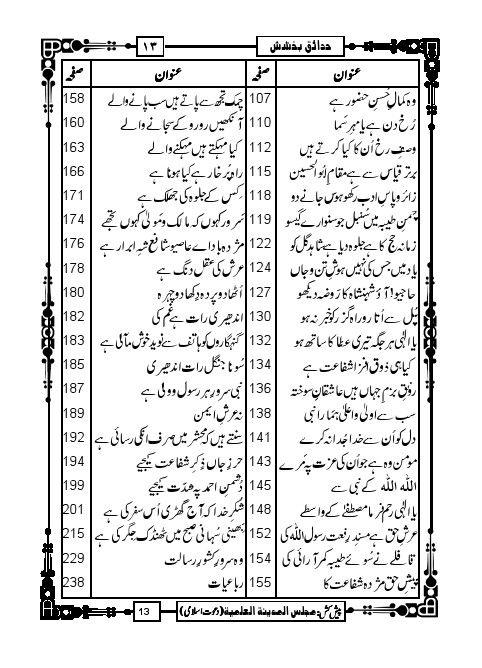 حدائق بخشش ۱۳
عنوان صفحہ عنوان صفحہ
وہ کمالِ حُسنِ حضور ہے 107 چمک تجھ سے پاتے ہیں سب پانے والے 158
رُخ دن ہے یا مہرِ سَما 110 آنکھیں رو رو کے سُجانے والے 160
وصفِ رخ اُن کا کیا کرتے ہیں 112 کیا مہکتے ہیں مہکنے والے 163
برتر قیاس سے ہے مقامِ ابوالحسین 115 راہ پُرخار ہے کیا ہونا ہے 166
زائرو پاسِ ادب رکھو ہوس جانے دو 118 کِس کے جلوہ کی جھلک ہے 171
چمنِ طیبہ میں سُنبل جو سنوارے گیسو 119 سَرور کہوں کہ مالک و مَولیٰ کہوں تجھے 174
زمانہ حج کا ہے جلوہ دیا ہے شاہدِ گل کو 122 مژدہ باد اے عاصیو شافع شہِ ابرار ہے 176
یاد میں جس کی نہیں ہوشِ تن و جاں 124 عرش کی عقل دنگ ہے 178
حاجیو! آؤ شہنشاہ کا رَوضہ دیکھو 127 اُٹھا دو پردہ دِکھا دو چہرہ 180
پُل سے اُتارو راہ گزر کو خبر نہ ہو 130 اندھیری رات ہے غم کی 182
یا الٰہی ہر جگہ تیری عطا کا ساتھ ہو 132 گنہگاروں کو ہاتف سے نوید خوش مآلی ہے 183
کیا ہی ذوق افزا شفاعت ہے 134 سُونا جنگل رات اندھیری 185
رونقِ بزمِ جہاں ہیں عاشقانِ سوختہ 136 نبی سرورِ ہر رسول و ولی ہے 187
سب سے اولیٰ و اعلیٰ ہمارا نبی 138 نہ عرشِ ایمن 189
دل کو اُن سے خدا جُدا نہ کرے 141 سنتے ہیں کہ محشر میں صرف اُنکی رسائی ہے 192
مومن وہ ہے جو اُن کی عزت پہ مرے 143 حرزِ جاں ذِکرِ شفاعت کیجیے 194
اللہ اللہ کے نبی سے 145 دُشمنِ احمد پہ شدّت کیجیے 199
یا الٰہی رحم فرما مصطفٰے کے واسطے 148 شکرِ خدا کہ آج گھڑی اُس سفر کی ہے 201
عرشِ حق ہے مسندِ رفعت رسول اللہ کی 152 بھینی سُہانی صبح میں ٹھنڈک جِگر کی ہے 215
قافلے نے سُوئے طیبہ کمر آرائی کی 154 وہ سرورِ کِشورِ رسالت 229
پیشِ حق مژدہ شفاعت کا 155 رباعیات 238
پیش کش: مجلس المدینۃ العلمیۃ (دعوتِ اسلامی) 13